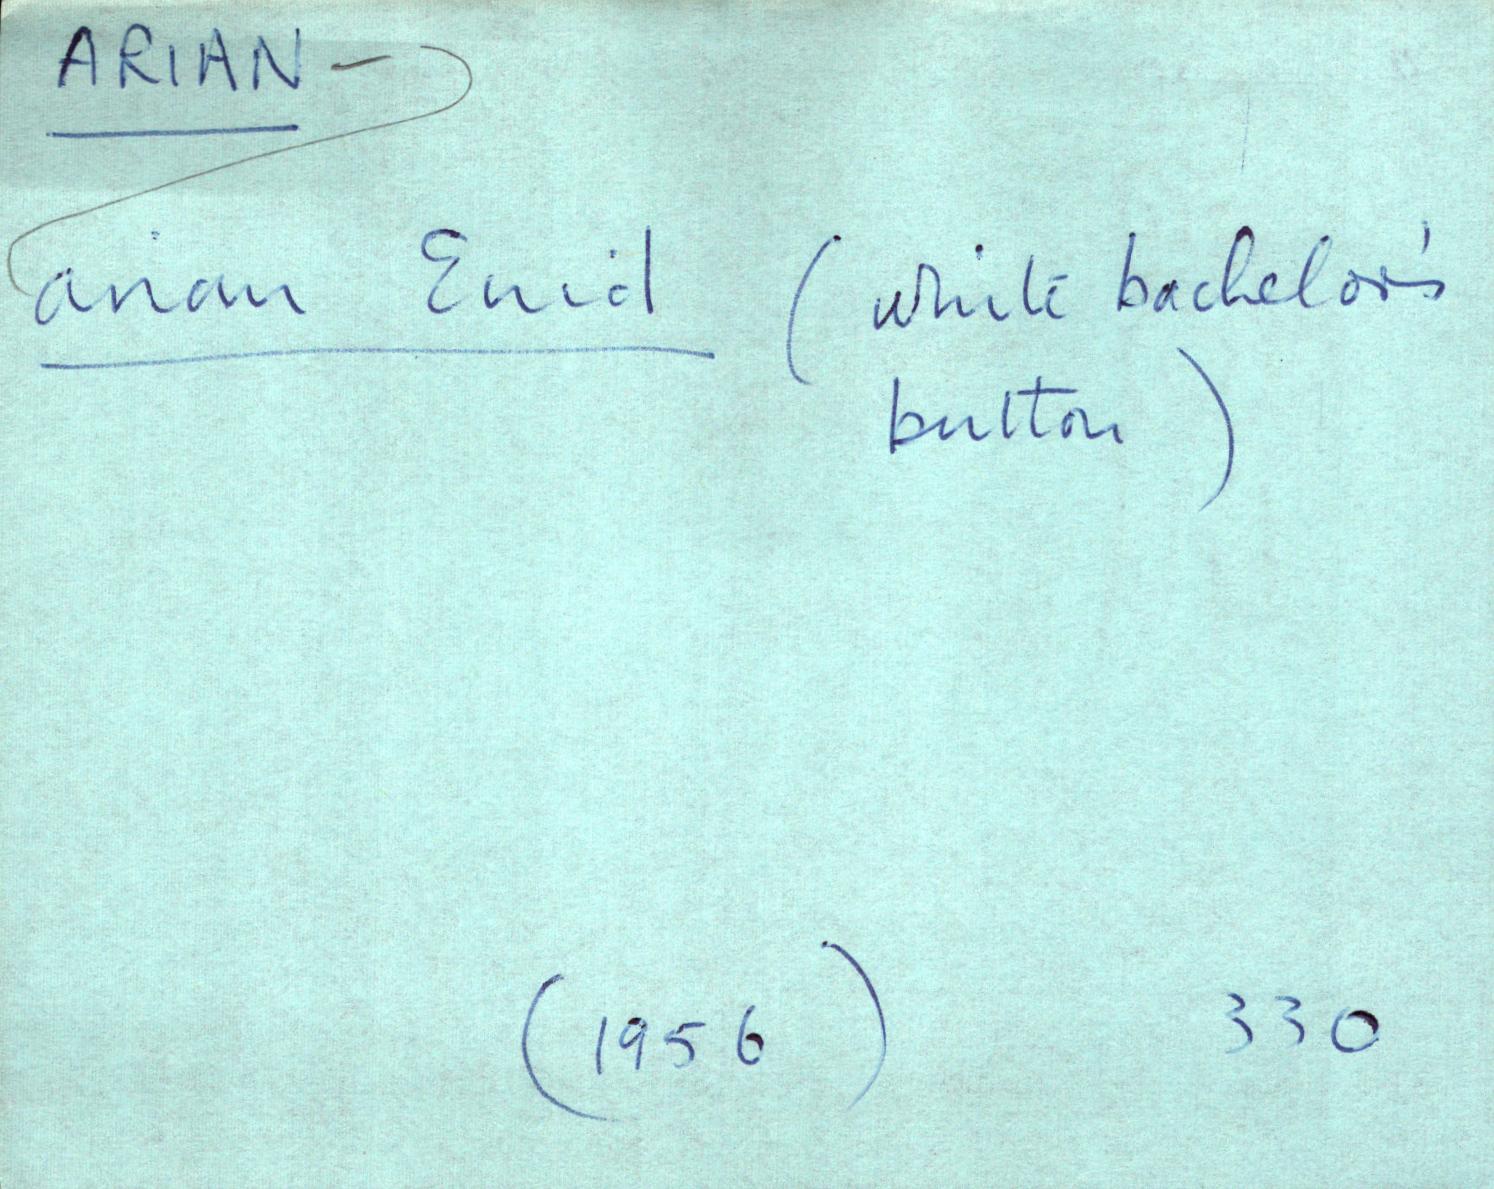 ARIAN –
arian Enid (white bachelor's
button)
(1956) 330